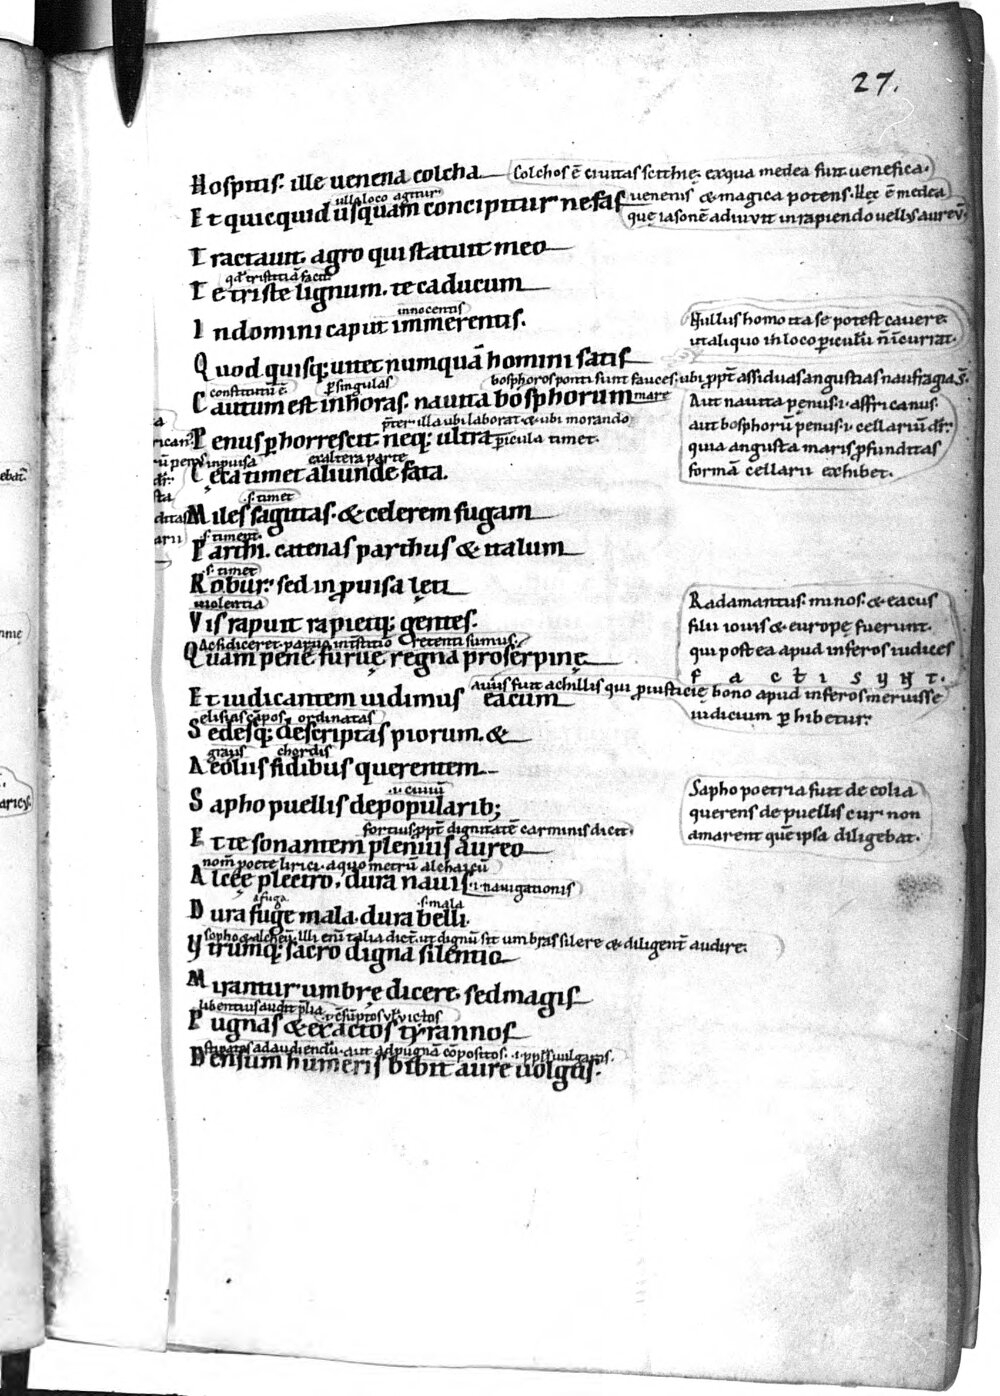 27.
Hospitis. ille uenena colcha
Colchos ē ciuitas scithię. ex qua medea fuit uenefica.
ulla loco agitur
Et quicquid usquam concipitur nefas
uenenis & magica potens. Hęc ē medea
quę iasonē adiuuit in rapiendo uellus aureū.
Tractauit. agro qui statuit meo
qd' tristitiā facit.
Te triste lignum. te caducum
innocentis
In domini caput immerentis.
Nullus homo ita se potest cauere
ut aliquo in loco periculū n̄ incurrat.
Quod quisq; uitet numquā homini satis
constitutū ē. p singulas
bosphoros ponti sunt fauces. ubi ppt̄ assiduas angustias naufragia s̄.
Cautum est in horas. nauita bosphorum mare
Aut nauita pęnus. i. affricanus.
pter illa ubi laborat & ubi morando
aut bosphorū pęnus. i. cellariū dr̄.
Penus phorrescit neq; ultra picula timet.
quia angusta maris pfunditas
inpuisa ex altera parte
Cęca timet aliunde fata.
formā cellarii exhibet.
.s. timet
Miles sagittas. & celerem fugam
.s. timent.
Parthi. catenas parthus & italum
.s. timet
Robur. sed inpuisa lęti
uiolentia
Vis rapuit rapietq; gentes.
Radamantus. minos. & eacus
filii iouis & europę fuerunt.
Ac si diceret. parua institio retenti sumus.
Quam pene furuę regna proserpinę
qui postea apud inferos iudices
facti sunt.
auus fuit achillis qui p iusticię bono apud inferos meruisse
Et iudicantem uidimus eacum
iudicium phibetur.
elisias capos ordinatas
Sedesq; descriptas piorum. &
grauis chordis
Aeoliis fidibus querentem
.i. ciuiū
Sapho puellis de popularib;
Sapho poetria fuit de eolia
querens de puellis cur non
amarent quē ipsa diligebat.
fortius. ppt̄ dignitatē carminis dicit.
Et te sonantem plenius aureo
nom̄ poete lirici. a quo metrū alchaicū
Alcęe plectro. dura nauis .i. nauigationis
a fuga .s. mala
Dura fugę mala. dura belli.
sopho & alcheū. illi eni talia dict. ut dignū sit umbras silere & diligent̄ audire.
Vtrumq; sacro digna silentio
Mirantur umbrę dicere. sed magis
libentius audit plia
Pugnas & exactos tyrannos
stipatos ad audiendū. aut ad pugnā cōpositos. .i. ppl's uulgaris.
Densum humeris bibit aure uolgus.